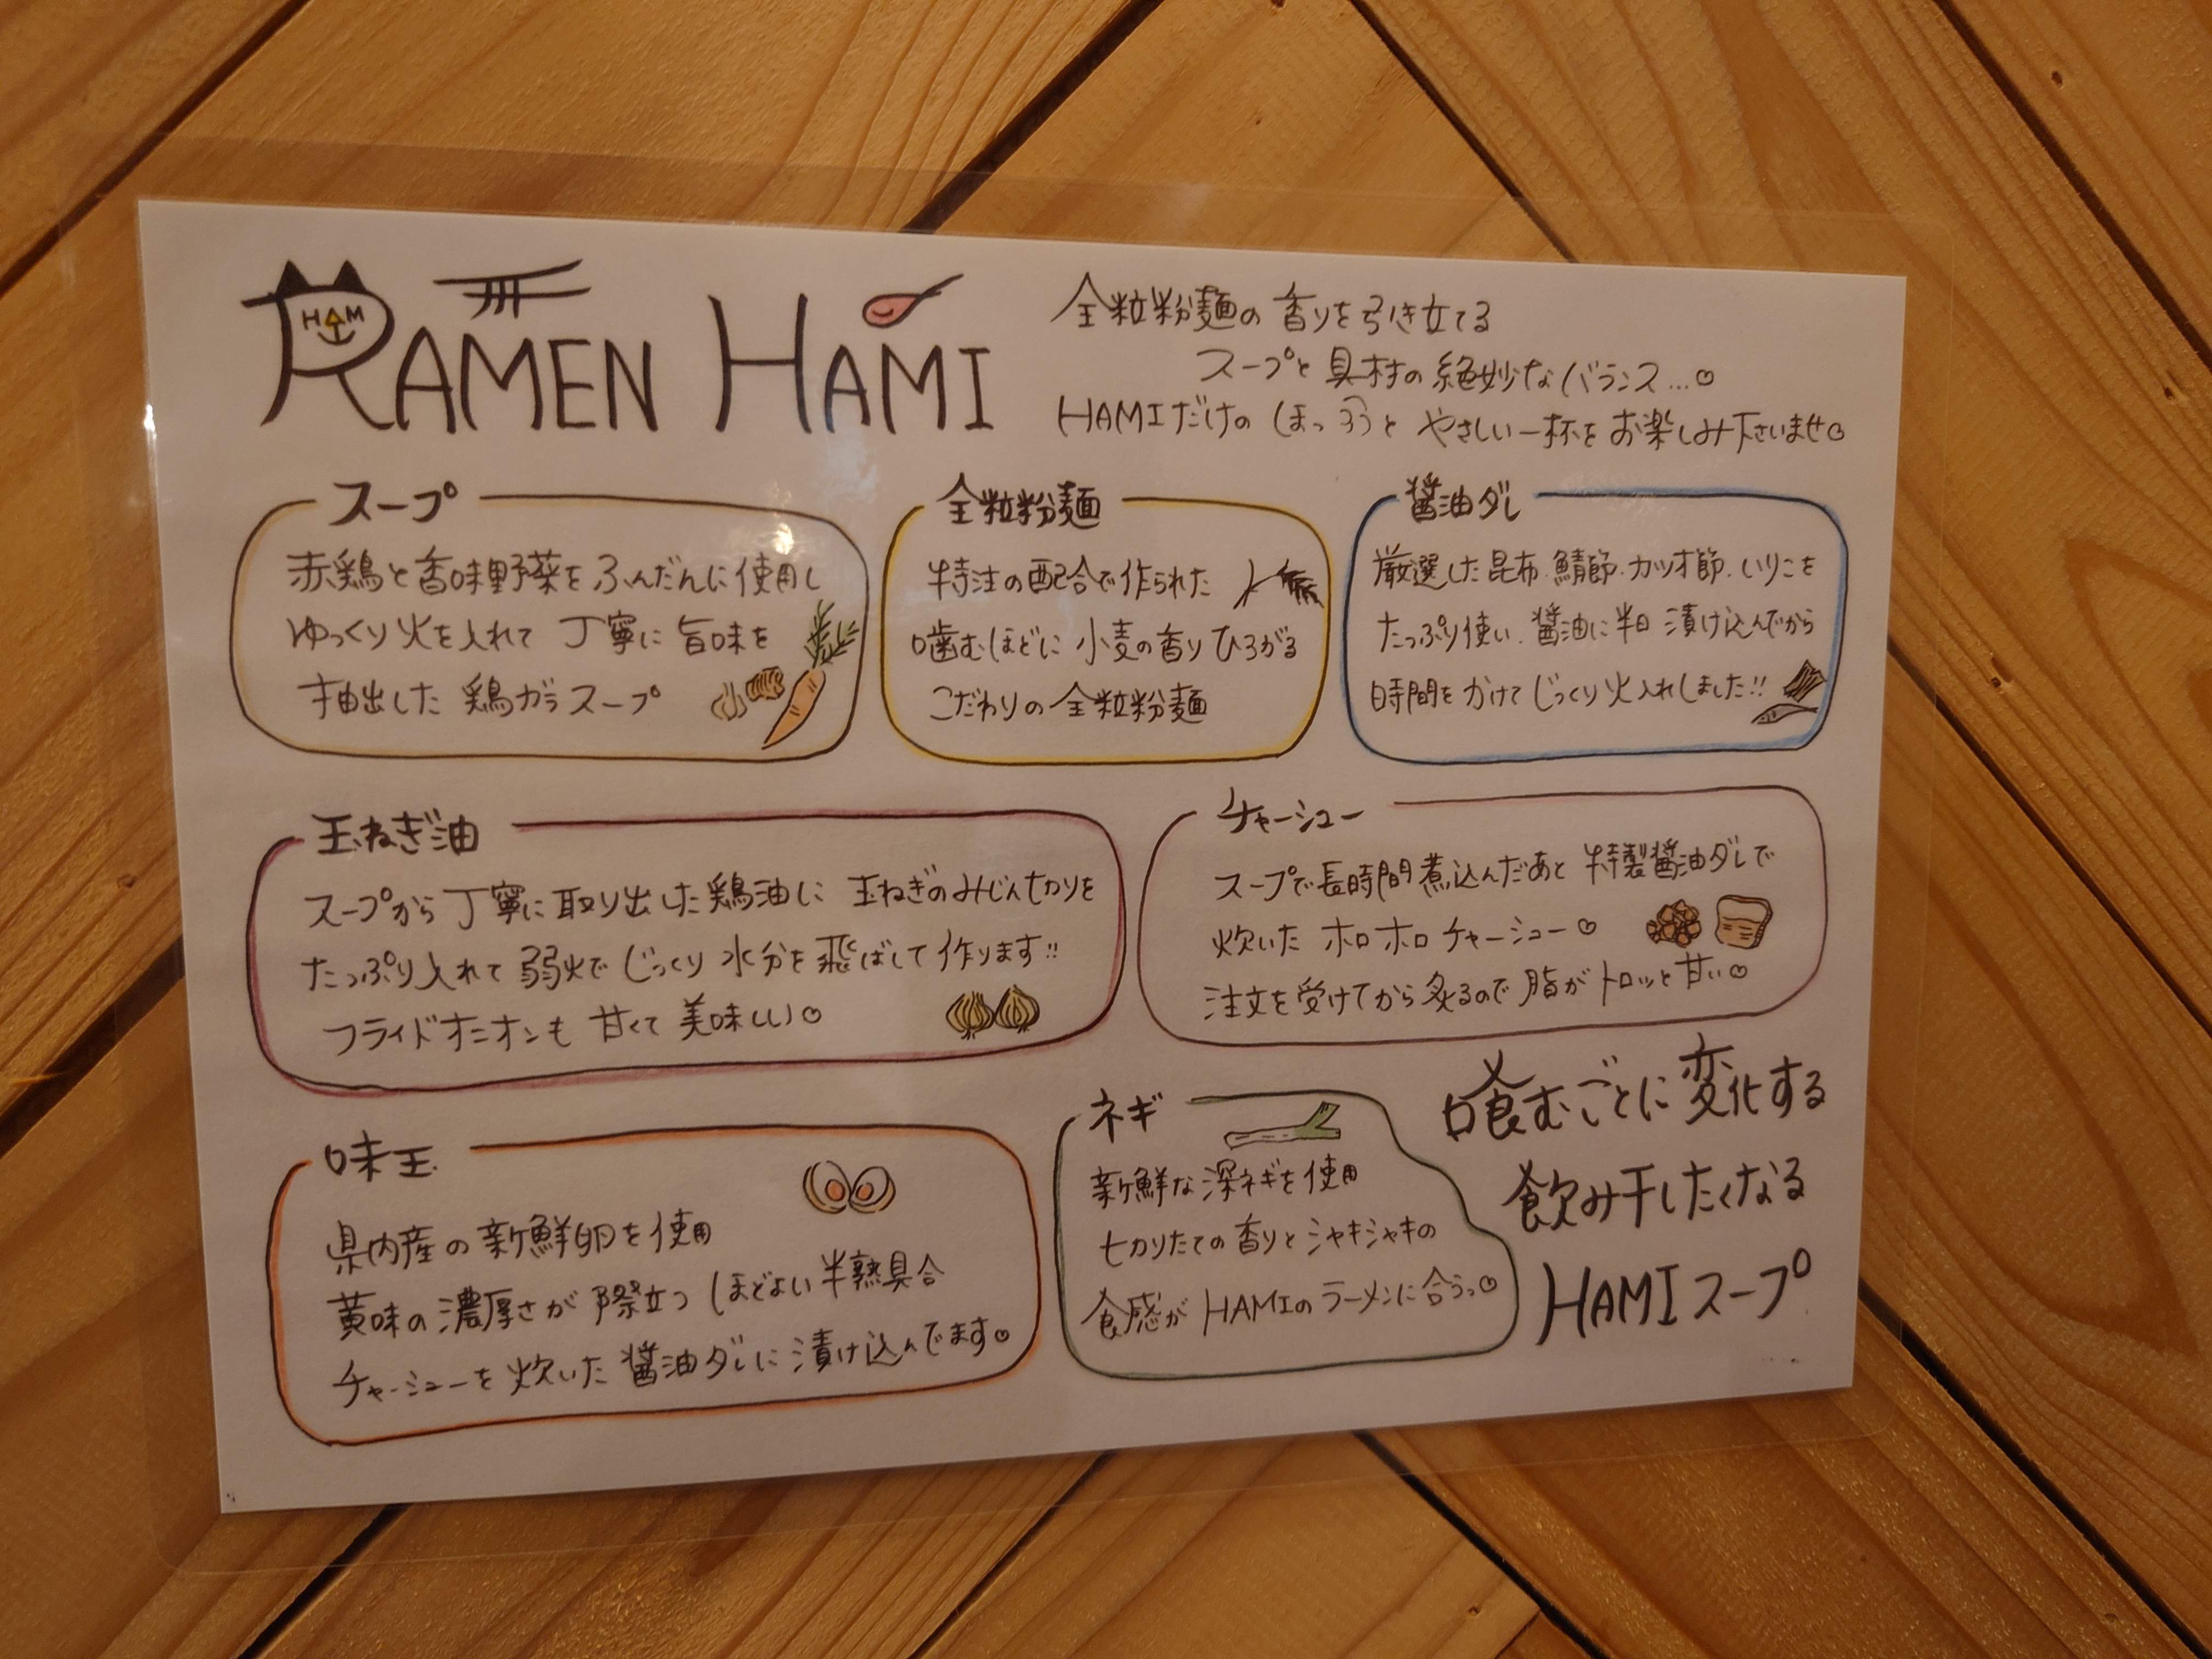 RAMEN HAMI
HAM
全粒粉麺の香りを引き立てる
スープと具材の絶妙なバランス…
HAMIだけのほっこりとやさしい一杯をお楽しみ下さいませ
スープ
赤鶏と香味野菜をふんだんに使用し
ゆっくり火を入れて丁寧に旨味を
抽出した鶏ガラスープ
全粒粉麺
特注の配合で作られた
噛むほどに小麦の香りひろがる
こだわりの全粒粉麺
醤油ダレ
厳選した昆布.鯖節.カツオ節.いりこを
たっぷり使い.醤油に半日漬け込んでから
時間をかけてじっくり火入れしました!!
玉ねぎ油
スープから丁寧に取り出した鶏油に玉ねぎのみじん切りを
たっぷり入れて弱火でじっくり水分を飛ばして作ります!!
フライドオニオンも甘くて美味しい♡
チャーシュー
スープで長時間煮込んだあと特製醤油ダレで
炊いたホロホロチャーシュー♡
注文を受けてから炙るので脂がトロッと甘い♡
味玉
県内産の新鮮卵を使用
黄味の濃厚さが際立つほどよい半熟具合
チャーシューを炊いた醤油ダレに漬け込んでます♡
ネギ
新鮮な深ネギを使用
切りたての香りとシャキシャキの
食感がHAMIのラーメンに合うっ♡
飲むごとに変化する
飲み干したくなる
HAMIスープ